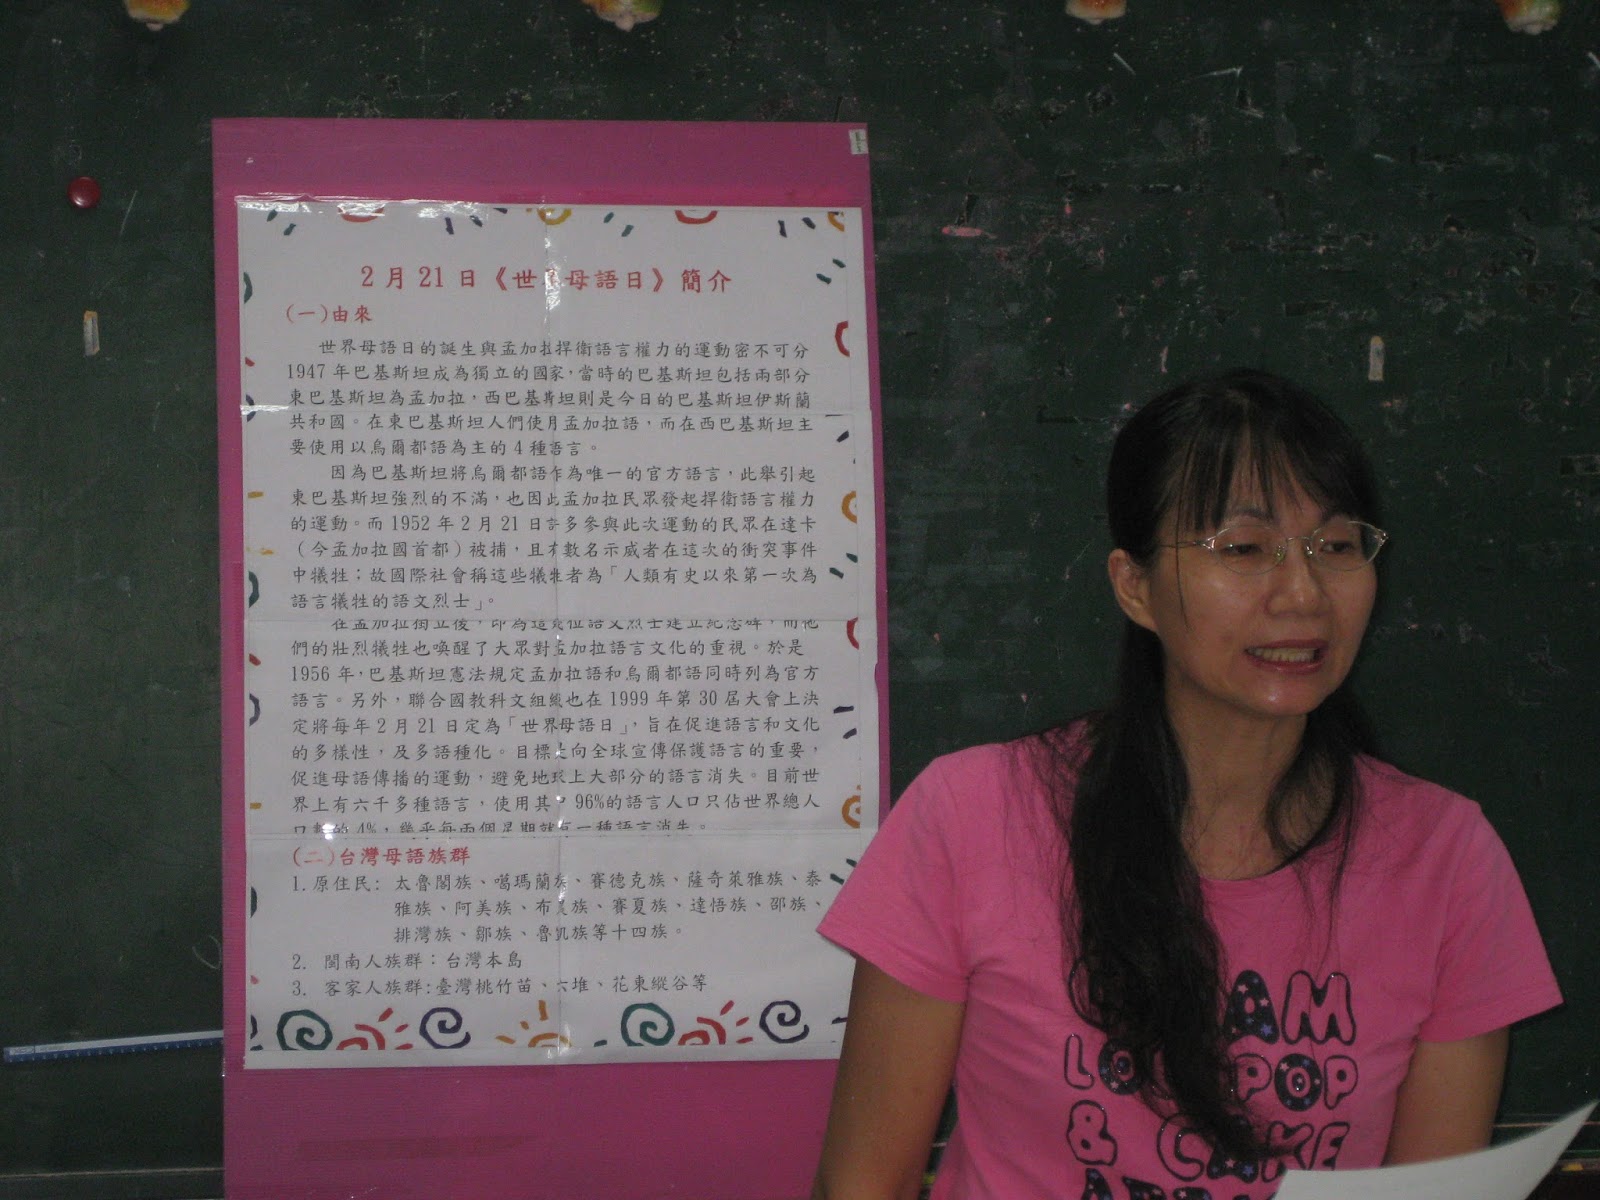 2 月 21 日《世界母語日》簡介
(一)由來
世界母語日的誕生與孟加拉捍衛語言權力的運動密不可分
1947 年巴基斯坦成為獨立的國家,當時的巴基斯坦包括兩部分
東巴基斯坦為孟加拉,西巴基斯坦則是今日的巴基斯坦伊斯蘭
共和國。在東巴基斯坦人們使用孟加拉語,而在西巴基斯坦主
要使用以烏爾都語為主的 4 種語言。
因為巴基斯坦將烏爾都語作為唯一的官方語言,此舉引起
東巴基斯坦強烈的不滿,也因此孟加拉民眾發起捍衛語言權力
的運動。而 1952 年 2 月 21 日許多參與此次運動的民眾在達卡
(今孟加拉國首都)被捕,且有數名示威者在這次的衝突事件
中犧牲;故國際社會稱這些犧牲者為「人類有史以來第一次為
語言犧牲的語文烈士」。
在孟加拉獨立後,即為這幾位語文烈士建立紀念碑,而他
們的壯烈犧牲也喚醒了大眾對孟加拉語言文化的重視。於是
1956 年,巴基斯坦憲法規定孟加拉語和烏爾都語同時列為官方
語言。另外,聯合國教科文組織也在 1999 年第 30 屆大會上決
定將每年 2 月 21 日定為「世界母語日」,旨在促進語言和文化
的多樣性,及多語種化。目標是向全球宣傳保護語言的重要,
促進母語傳播的運動,避免地球上大部分的語言消失。目前世
界上有六千多種語言,使用其中 96%的語言人口只佔世界總人
口數的 4%,幾乎每兩個星期就有一種語言消失。
(二)台灣母語族群
1.原住民: 太魯閣族、噶瑪蘭族、賽德克族、薩奇萊雅族、泰
雅族、阿美族、布農族、賽夏族、達悟族、邵族、
排灣族、鄒族、魯凱族等十四族。
2. 閩南人族群:台灣本島
3. 客家人族群:臺灣桃竹苗、六堆、花東縱谷等
AM
LO POP
& CAKE